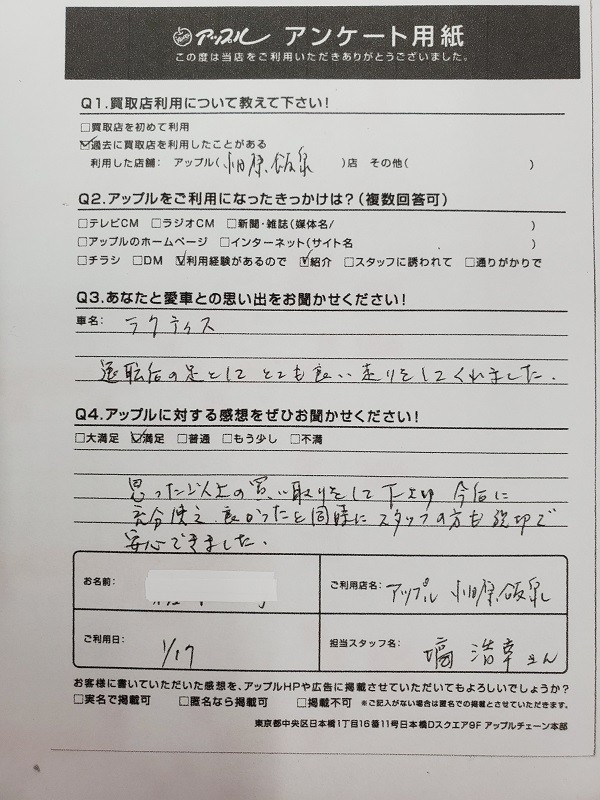 アップル アンケート用紙
この度は当店をご利用いただきありがとうございました。
Q1.買取店利用について教えて下さい!
□買取店を初めて利用
☑過去に買取店を利用したことがある
利用した店舗: アップル(小田原飯泉)店 その他( )
Q2.アップルをご利用になったきっかけは?(複数回答可)
□テレビCM □ラジオCM □新聞・雑誌(媒体名/ )
□アップルのホームページ □インターネット(サイト名 )
□チラシ □DM ☑利用経験があるので ☑紹介 □スタッフに誘われて □通りがかりで
Q3.あなたと愛車との思い出をお聞かせください!
車名: ラクティス
の足としてとても良い走りをしてくれました.
Q4.アップルに対する感想をぜひお聞かせください!
□大満足 ☑満足 □普通 □もう少し □不満
思った以上の買い取りをして下さり 今后に
充分使え 良かったと同時にスタッフの方も親切で
安心できました.
お名前:
ご利用店名: アップル 小田原飯泉
ご利用日: 1/17
担当スタッフ名: 浩章さん
お客様に書いていただいた感想を、アップルHPや広告に掲載させていただいてもよろしいでしょうか?
□実名で掲載可 □匿名なら掲載可 □掲載不可 ※ご記入がない場合は匿名での掲載とさせていただきます。
東京都中央区日本橋1丁目16番11号日本橋Dスクエア9F アップルチェーン本部